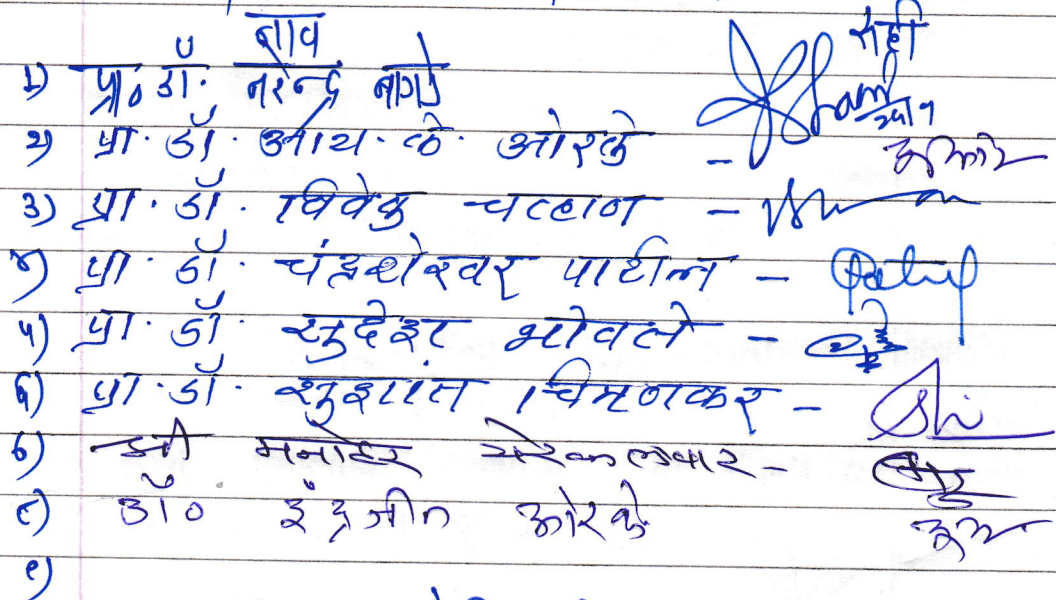 नाव सही
१) प्रा. डॉ. नरेन्द्र बागडे
२) प्रा. डॉ. आय. के. ओरके -
३) प्रा. डॉ. विवेक चव्हाण -
४) प्रा. डॉ. चंद्रशेखर पाटील - Patil
५) प्रा. डॉ. सुदेश भोवते -
६) प्रा. डॉ. सुशांत चिमणकर -
७) श्री मनोहर -
८) डॉ० इंद्रजीत ओरके
९)